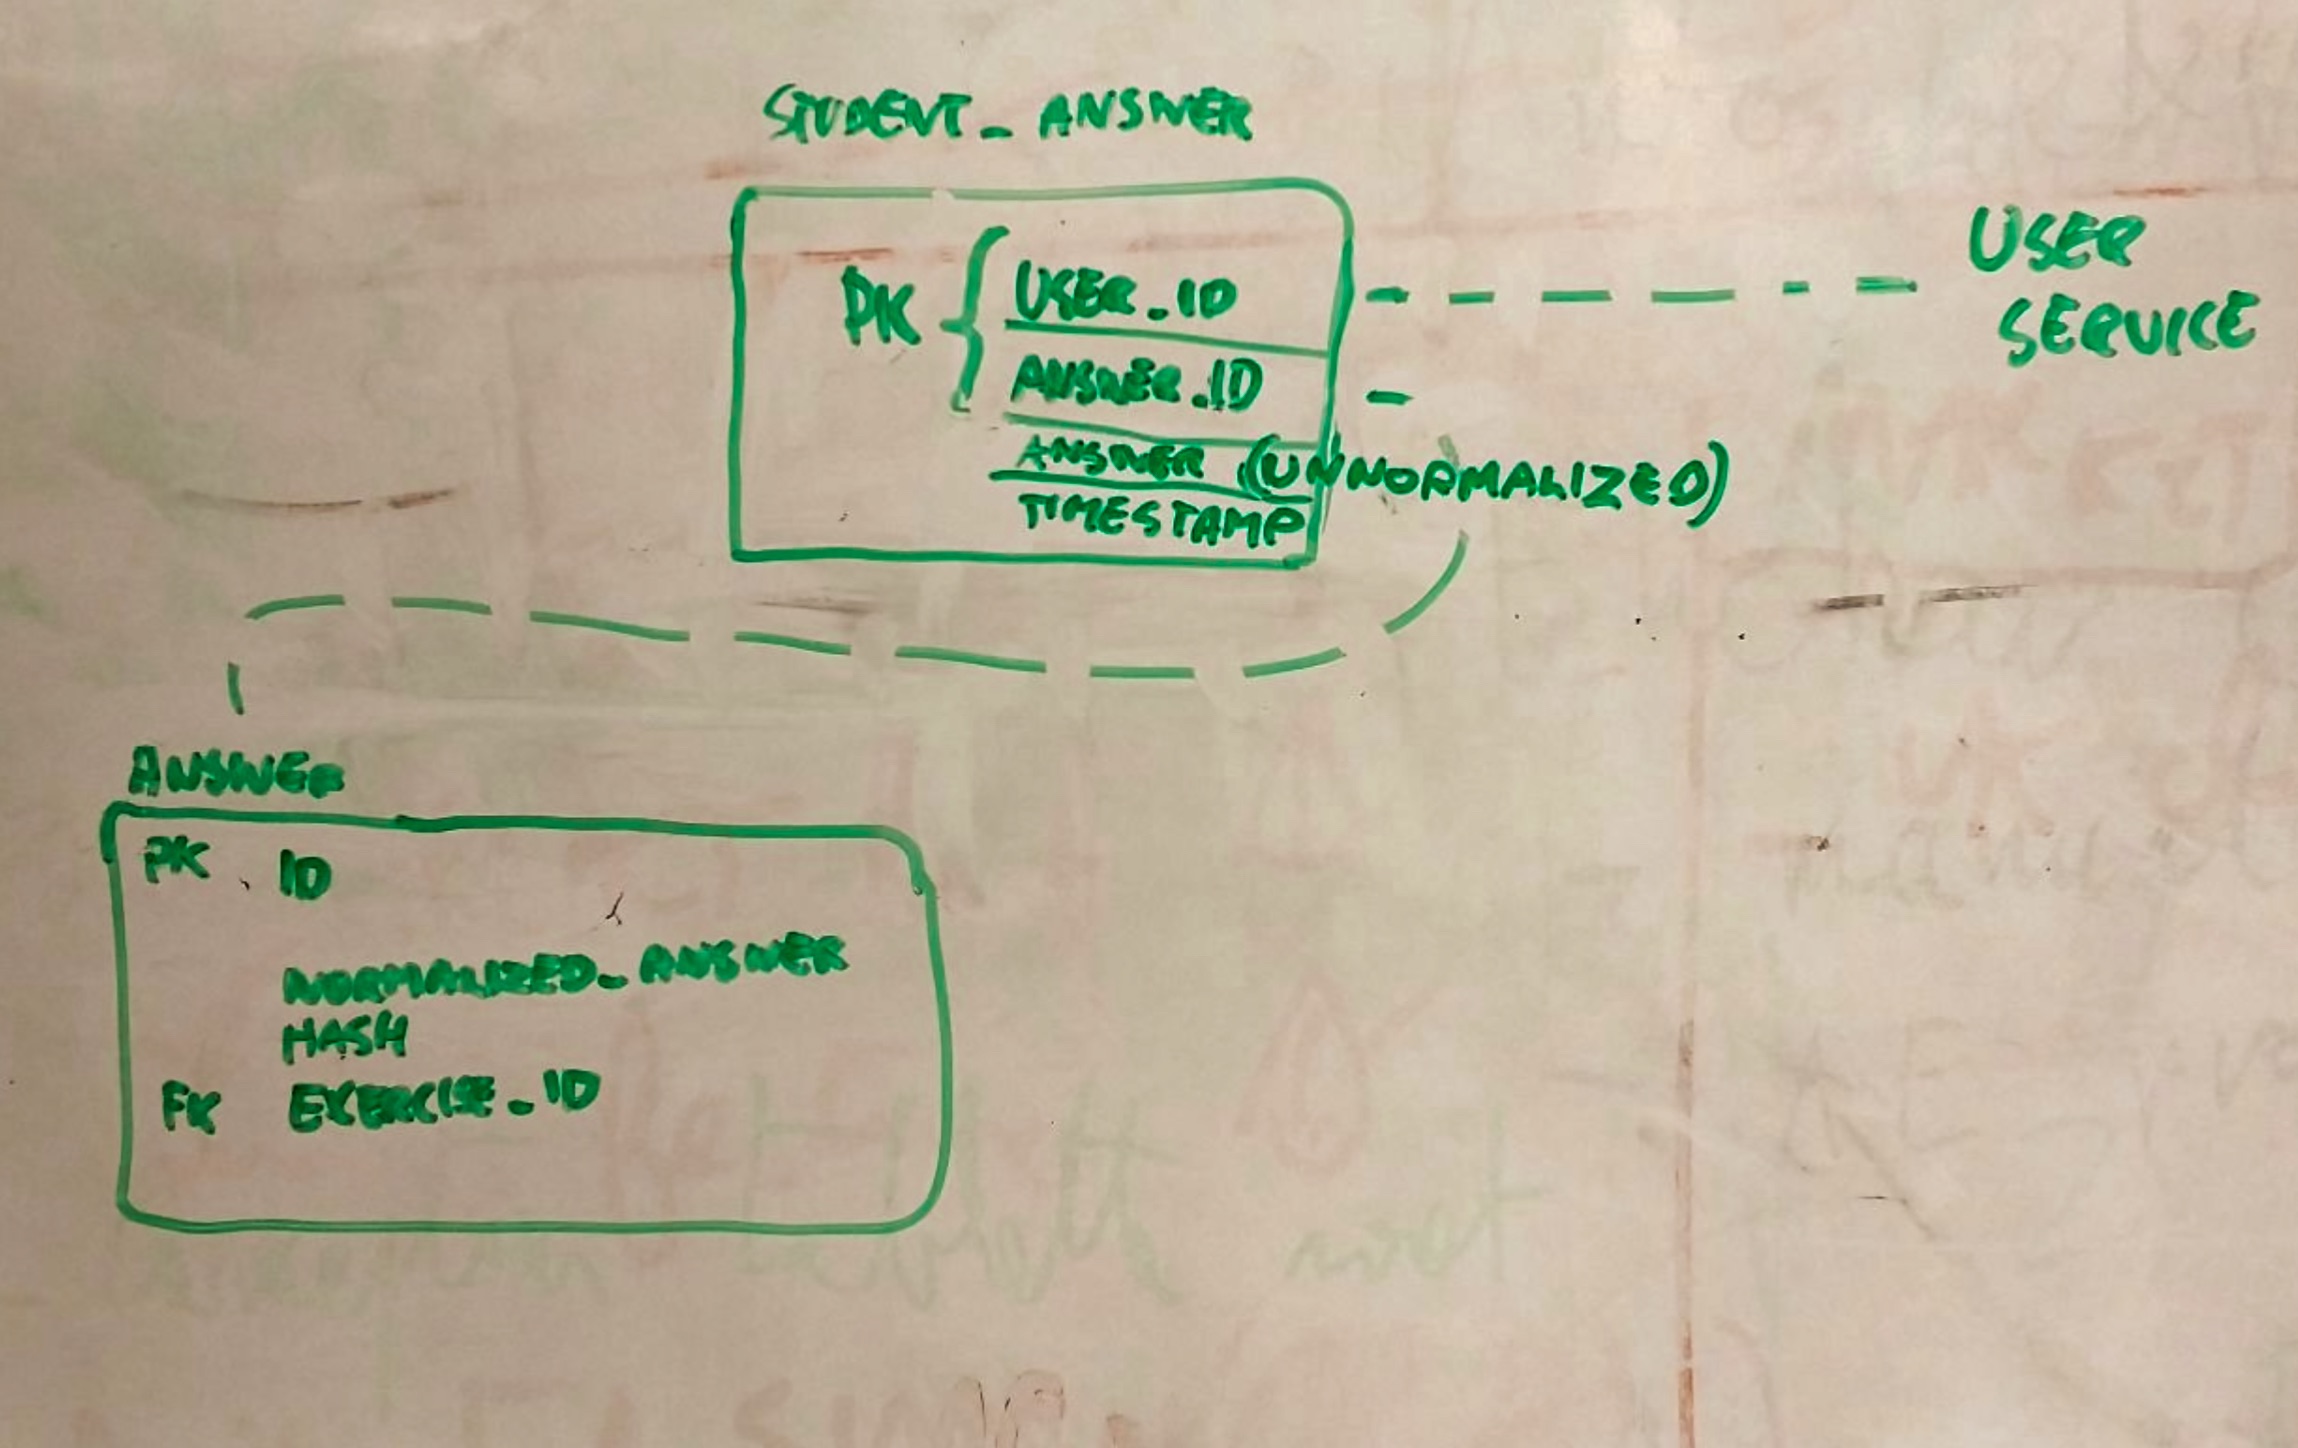 STUDENT_ANSWER
PK { USER_ID
ANSWER_ID
ANSWER (UNNORMALIZED)
TIMESTAMP
USER
SERVICE
ANSWER
PK ID
NORMALIZED_ANSWER
HASH
FK EXERCISE_ID